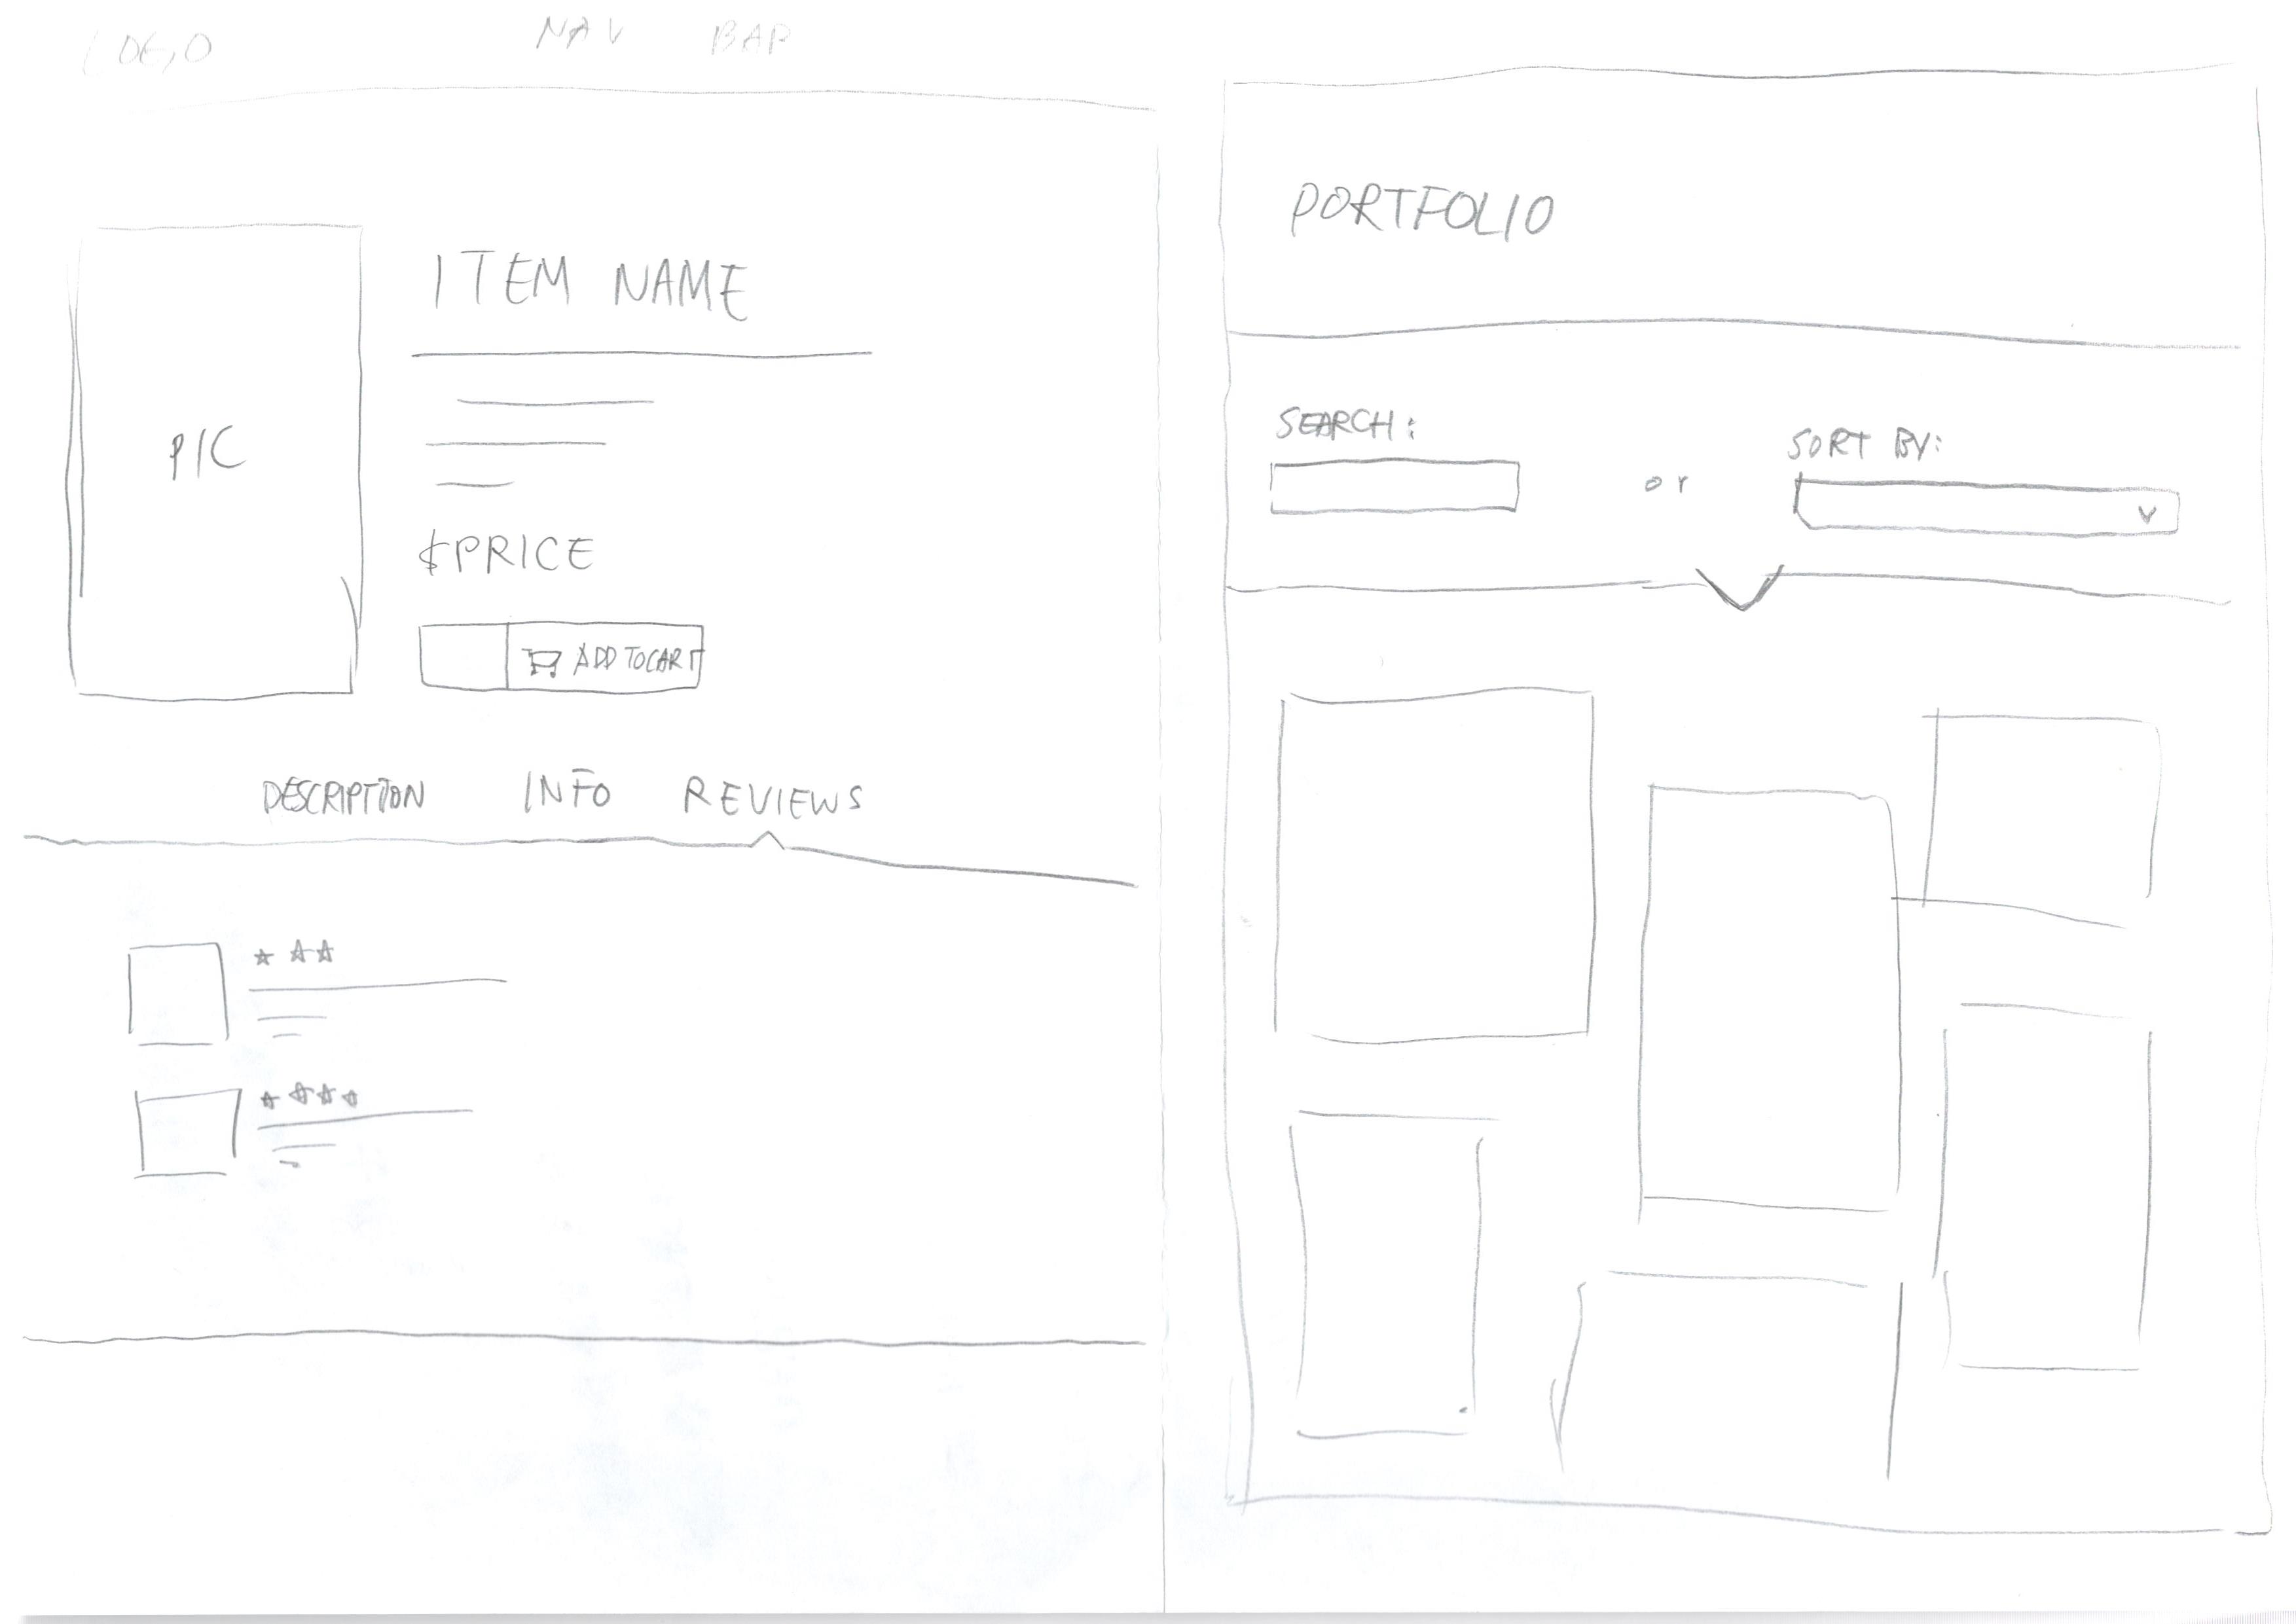 LOGO
NAV BAR
ITEM NAME
PIC
$PRICE
ADD TO CART
DESCRIPTION INFO REVIEWS
PORTFOLIO
SEARCH:
or
SORT BY: